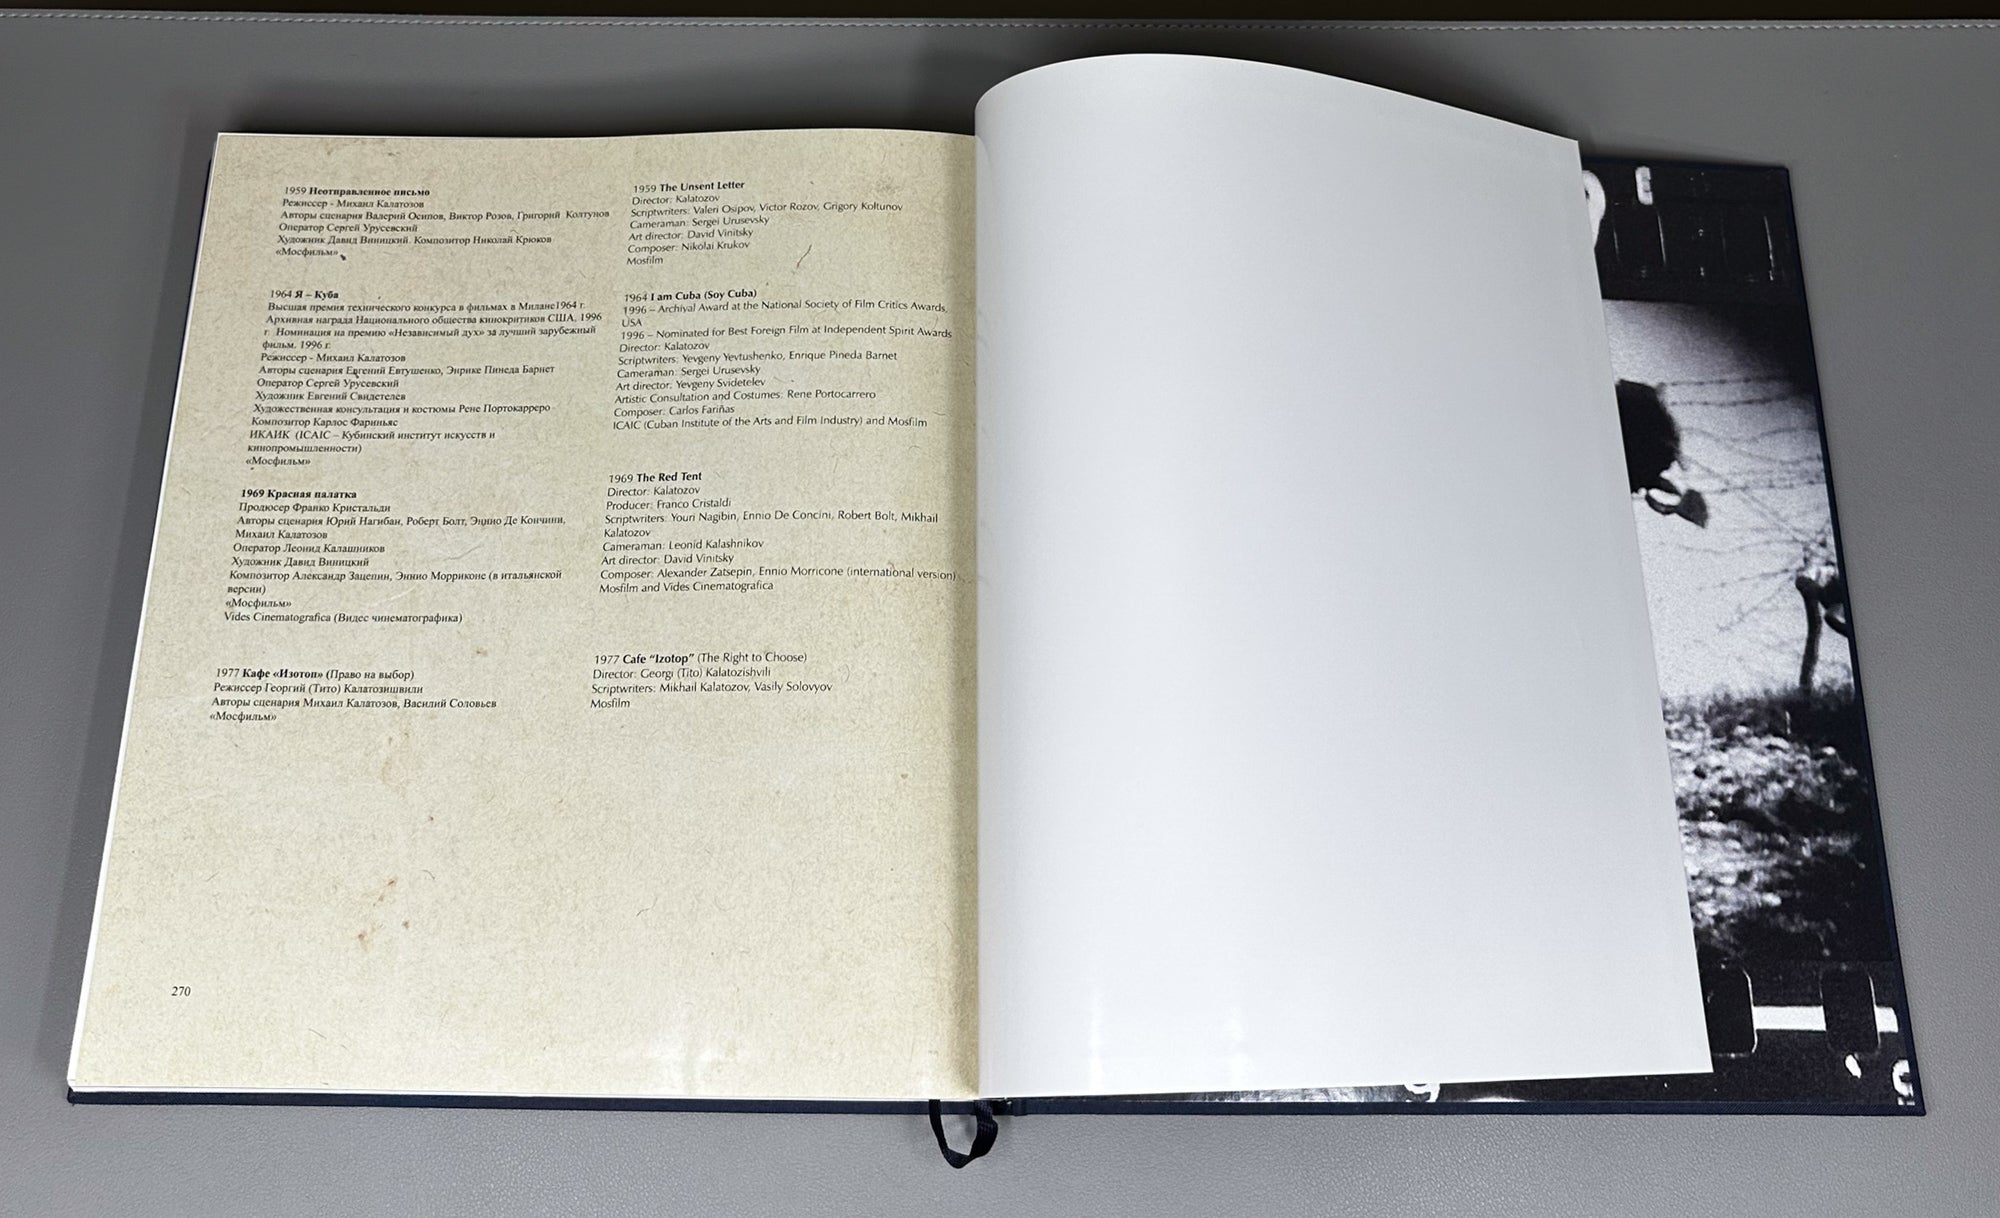 1959 Неотправленное письмо
Режиссер - Михаил Калатозов
Авторы сценария Валерий Осипов, Виктор Розов, Григорий Колтунов
Оператор Сергей Урусевский
Художник Давид Виницкий. Композитор Николай Крюков
«Мосфильм»
1964 Я – Куба
Высшая премия технического конкурса в фильмах в Милане1964 г.
Архивная награда Национального общества кинокритиков США, 1996
г. Номинация на премию «Независимый дух» за лучший зарубежный
фильм. 1996 г.
Режиссер - Михаил Калатозов
Авторы сценария Евгений Евтушенко, Энрике Пинеда Барнет
Оператор Сергей Урусевский
Художник Евгений Свидетелев
Художественная консультация и костюмы Рене Портокарреро
Композитор Карлос Фариньяс
ИКАИК (ICAIC – Кубинский институт искусств и
кинопромышленности)
«Мосфильм»
1969 Красная палатка
Продюсер Франко Кристальди
Авторы сценария Юрий Нагибан, Роберт Болт, Эннио Де Кончини,
Михаил Калатозов
Оператор Леонид Калашников
Художник Давид Виницкий
Композитор Александр Зацепин, Эннио Морриконе (в итальянской
версии)
«Мосфильм»
Vides Cinematografica (Видес чинематографика)
1977 Кафе «Изотоп» (Право на выбор)
Режиссер Георгий (Тито) Калатозишвили
Авторы сценария Михаил Калатозов, Василий Соловьев
«Мосфильм»
270
1959 The Unsent Letter
Director: Kalatozov
Scriptwriters: Valeri Osipov, Victor Rozov, Grigory Koltunov
Cameraman: Sergei Urusevsky
Art director: David Vinitsky
Composer: Nikolai Krukov
Mosfilm
1964 I am Cuba (Soy Cuba)
1996 – Archival Award at the National Society of Film Critics Awards,
USA
1996 – Nominated for Best Foreign Film at Independent Spirit Awards
Director: Kalatozov
Scriptwriters: Yevgeny Yevtushenko, Enrique Pineda Barnet
Cameraman: Sergei Urusevsky
Art director: Yevgeny Svidetelev
Artistic Consultation and Costumes: Rene Portocarrero
Composer: Carlos Fariñas
ICAIC (Cuban Institute of the Arts and Film Industry) and Mosfilm
1969 The Red Tent
Director: Kalatozov
Producer: Franco Cristaldi
Scriptwriters: Youri Nagibin, Ennio De Concini, Robert Bolt, Mikhail
Kalatozov
Cameraman: Leonid Kalashnikov
Art director: David Vinitsky
Composer: Alexander Zatsepin, Ennio Morricone (international version)
Mosfilm and Vides Cinematografica
1977 Cafe “Izotop” (The Right to Choose)
Director: Georgi (Tito) Kalatozishvili
Scriptwriters: Mikhail Kalatozov, Vasily Solovyov
Mosfilm